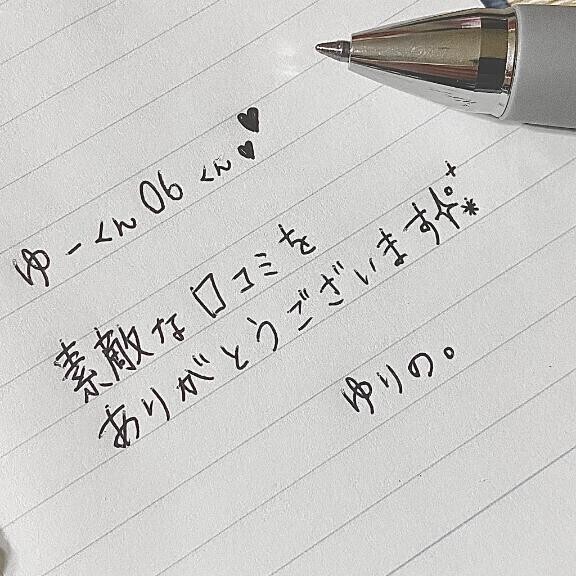 ゆーくん06くん♥♥
素敵な口コミを
ありがとうございます
ゆりの。